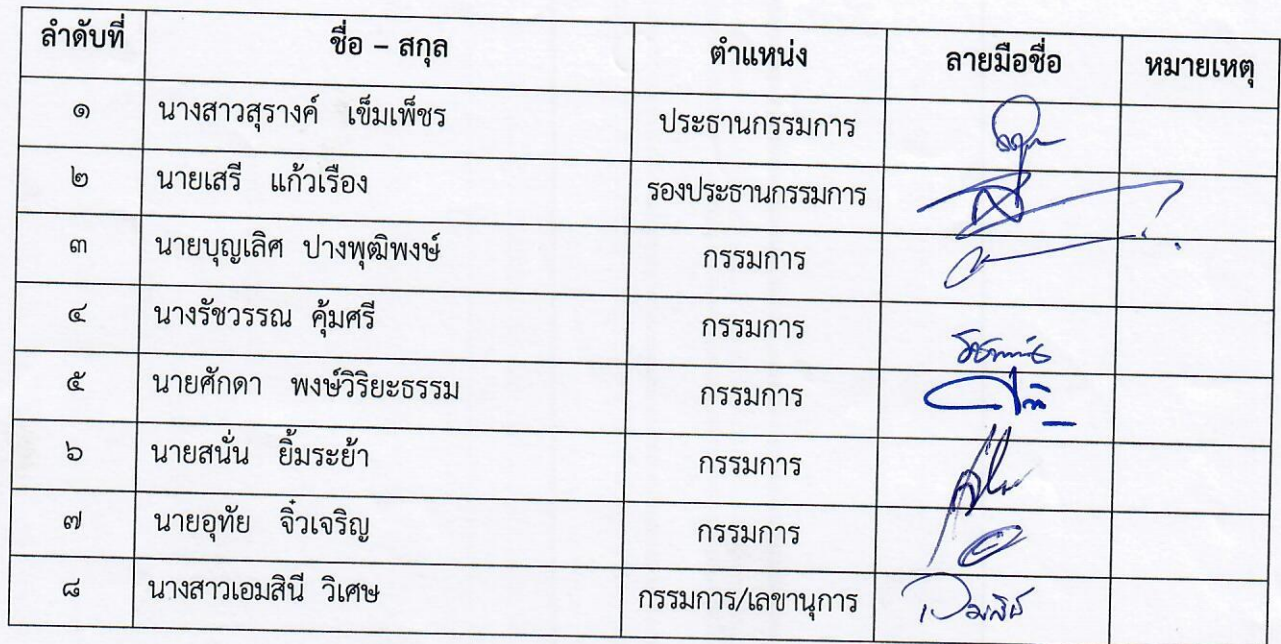 ลำดับที่ ชื่อ – สกุล ตำแหน่ง ลายมือชื่อ หมายเหตุ
๑ นางสาวสุรางค์ เข็มเพ็ชร ประธานกรรมการ
๒ นายเสรี แก้วเรือง รองประธานกรรมการ
๓ นายบุญเลิศ ปางพุฒิพงษ์ กรรมการ
๔ นางรัชวรรณ คุ้มศรี กรรมการ
๕ นายศักดา พงษ์วิริยะธรรม กรรมการ
๖ นายสนั่น ยิ้มระย้า กรรมการ
๗ นายอุทัย จิ๋วเจริญ กรรมการ
๘ นางสาวเอมสินี วิเศษ กรรมการ/เลขานุการ